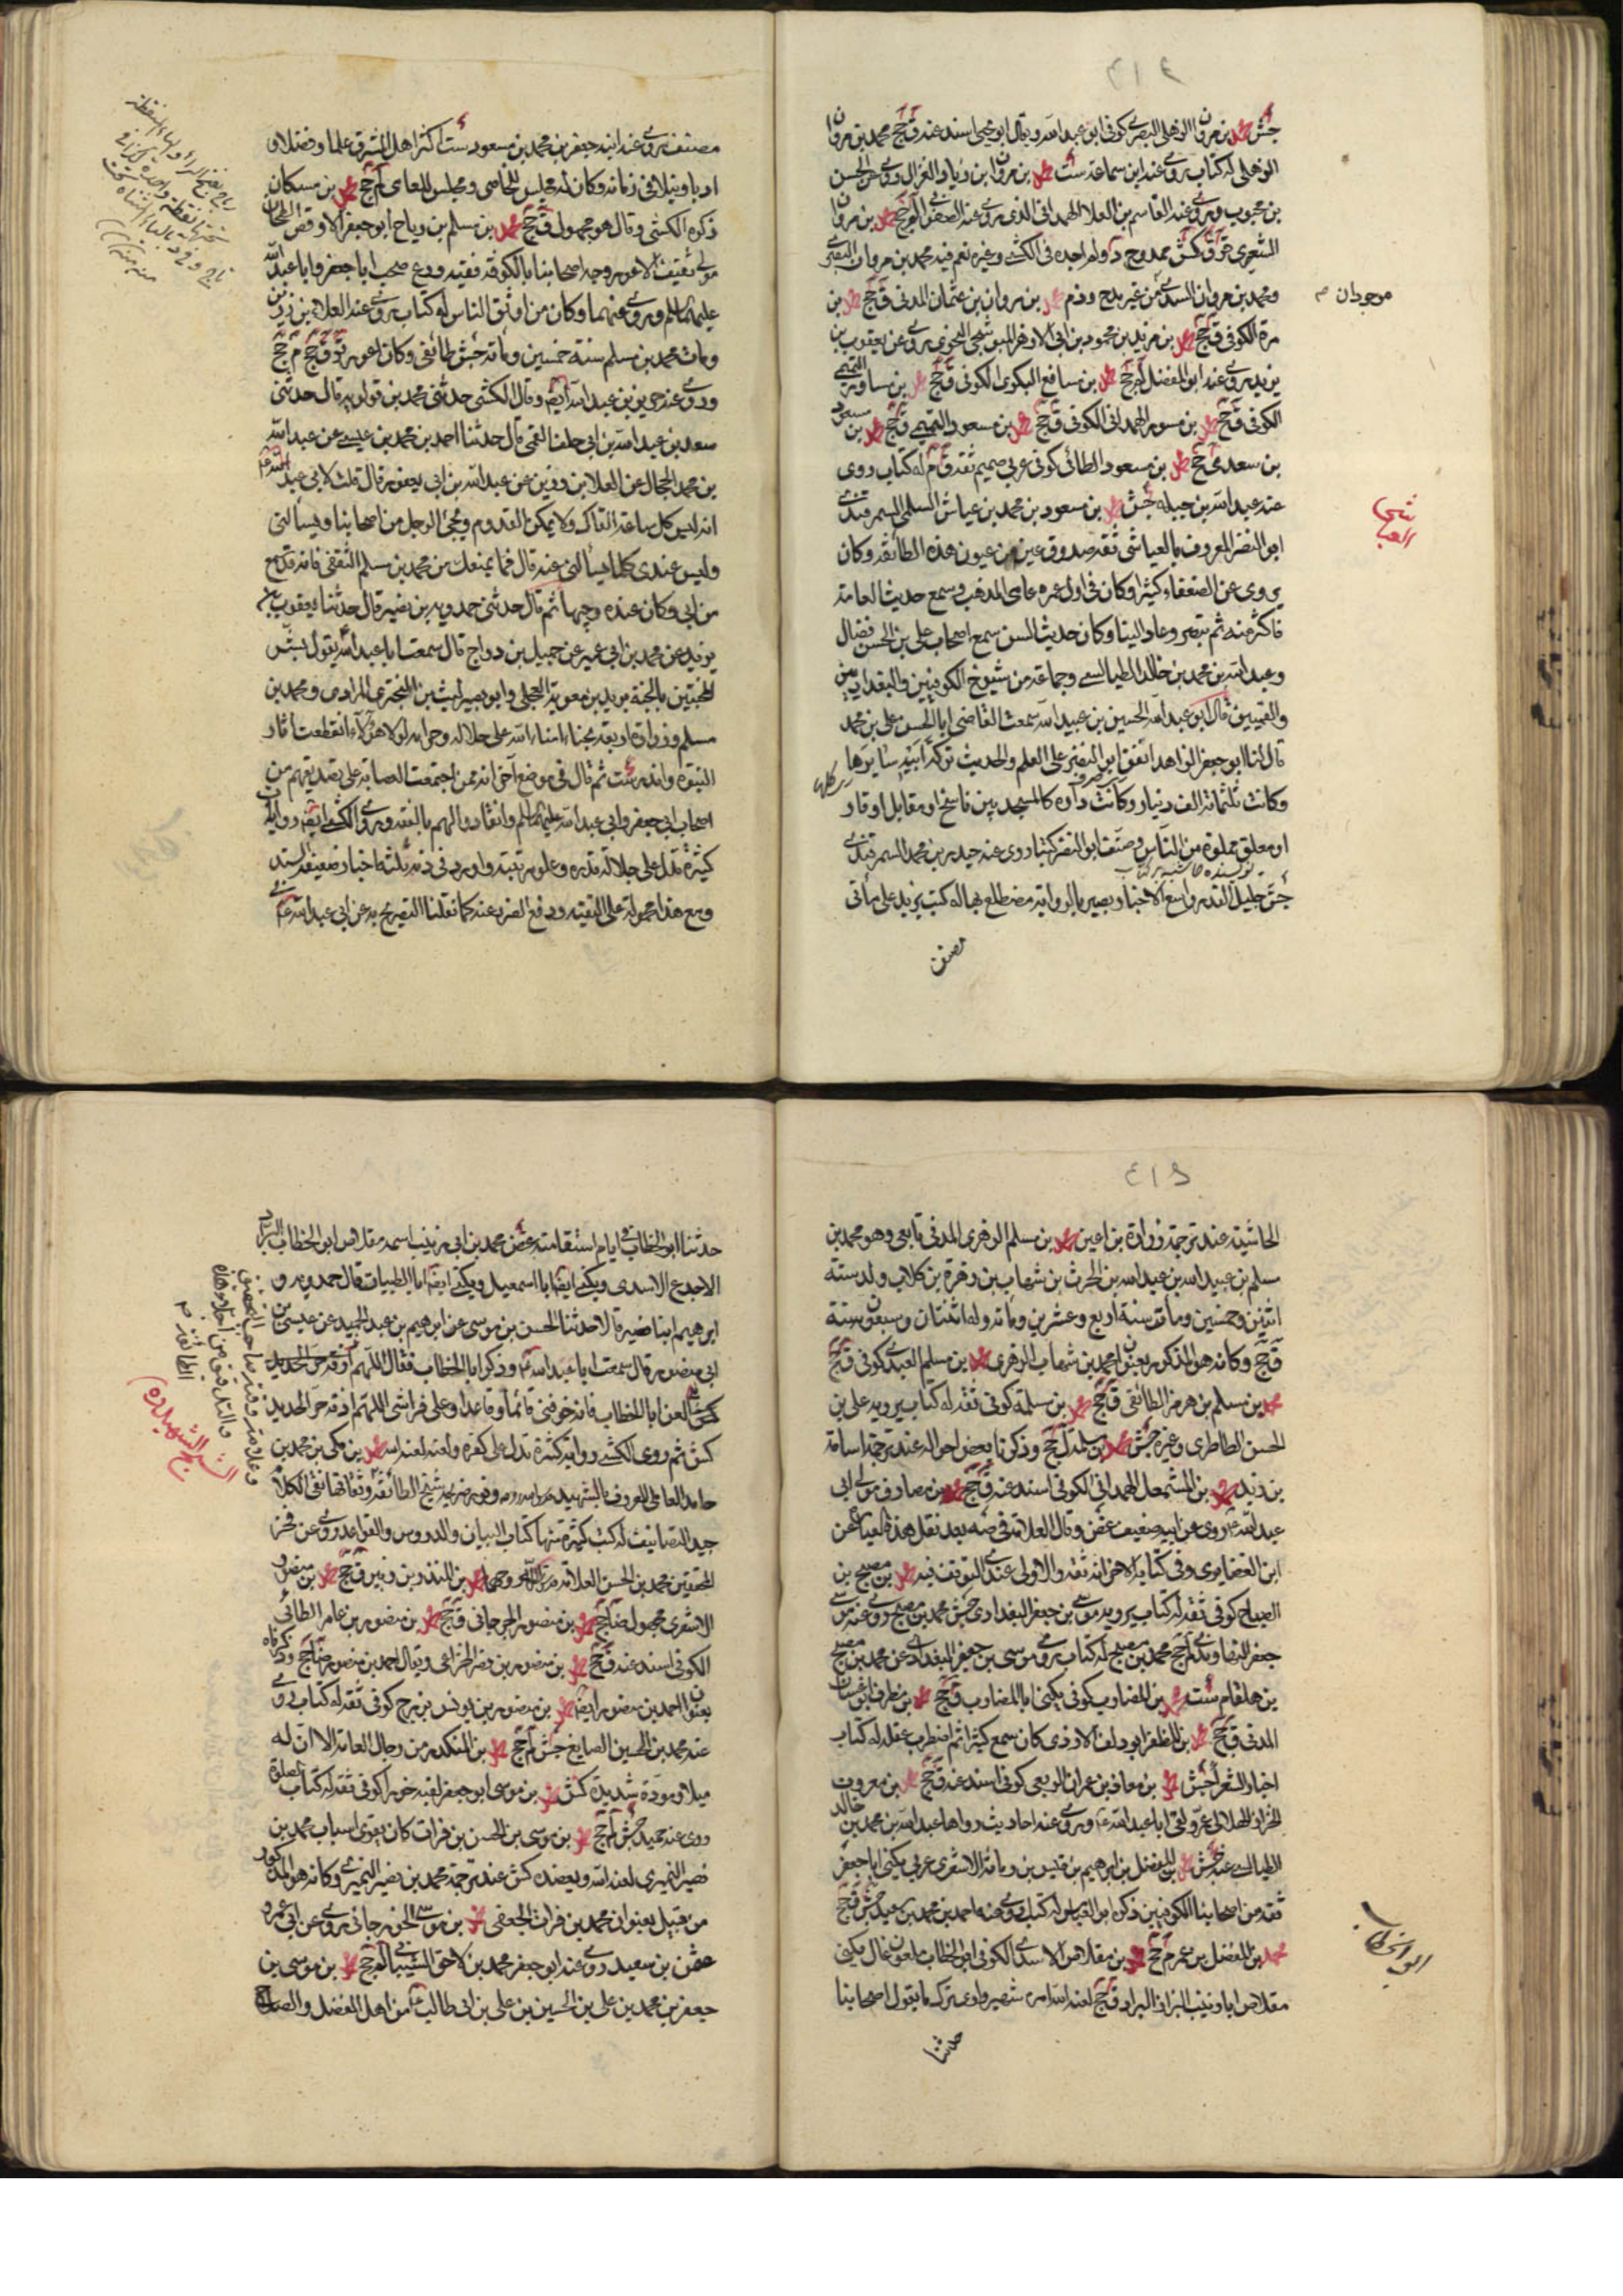 ٤١٢
جش محمد بن مروان الذهلي البصري كوفي ابو عبد الله ويقال ابو يحيى اسند عنه ق جخ محمد بن مروان
الذهلي له كتاب روى عنه ابن سماعة ست محمد بن مروان بن زياد الغزال روى عن الحسن
بن محبوب وروى عنه القاسم بن العلا الهمداني الذي روى عنه الصفواني لم جخ محمد بن مروان
الشعيري ق كش ممدوح د ولم اجده في الكشي وغيره نعم فيه محمد بن مروان البصري
ومحمد بن مروان السدي من غير مدح وذم محمد بن مروان بن عثمان المدني ق جخ محمد بن
مرة الكوفي ق جخ محمد بن مزيد بن محمود بن ابي الازهر البوشنجي النحوي روى عن يعقوب بن
يزيد روى عنه ابو المفضل لم جخ محمد بن مسافع البكري الكوفي ق جخ محمد بن مساور التميمي
الكوفي ق جخ محمد بن مسور الهمداني الكوفي ق جخ محمد بن مسعود التميمي ق جخ محمد بن مسعود
بن سعد ق جخ محمد بن مسعود الطائي كوفي عربي صميم ثقة ق م له كتاب روى
عنه عبد الله بن جبلة جش محمد بن مسعود بن محمد بن عياش السلمي السمرقندي
ابو النضر المعروف بالعياشي ثقة صدوق عين من عيون هذه الطائفة وكان
يروى عن الضعفاء كثيرا وكان في اول عمره عامي المذهب وسمع حديث العامة
فاكثر منه ثم تبصر وعاد الينا وكان حديث السن سمع اصحاب علي بن الحسن فضال
وعبد الله بن محمد بن خالد الطيالسي وجماعة من شيوخ الكوفيين والبغداديين
والقميين قال ابو عبد الله الحسين بن عبيد الله سمعت القاضي ابا الحسن علي بن محمد
قال لنا ابو جعفر الزاهد انفق ابو النضر على العلم والحديث تركة ابيه سايرها
وكانت ثلثمائة الف دينار وكانت داره كالمسجد بين ناسخ او مقابل او قار
او معلق مملوة من الناس وصنف ابو النضر كتبا روى عنه حيدر بن محمد السمرقندي
جش جليل القدر واسع الاخبار بصير بالرواية مضطلع بها له كتب يزيد على مأتي
مصنف
موجودان م
العياشي
مصنف روى عنه ابنه جعفر بن محمد بن مسعود ست اكثر اهل المشرق علما وفضلا و
ادبا ونبلا في زمانه وكان له مجلس للخاصي ومجلس للعامي لم جخ محمد بن مسكان
ذكره الكشي وقال هو مجهول ق جخ محمد بن مسلم بن رياح ابو جعفر الاوقص الطحان
مولى ثقيف الاعور وجه اصحابنا بالكوفة فقيه ورع صحب ابا جعفر وابا عبد الله
عليهما السلم وروى عنهما وكان من اوثق الناس له كتاب روى عنه العلاء بن رزين
ومات محمد بن مسلم سنة خمسين ومائة جش طائفي وكان اعور قر ق جخ م جخ
وروى عنه حريز بن عبد الله ايضا وقال الكشي حدثني محمد بن قولويه قال حدثني
سعد بن عبد الله بن ابي خلف القمي قال حدثنا احمد بن محمد بن عيسى عن عبد الله
بن محمد الحجال عن العلا بن رزين عن عبد الله بن ابي يعفور قال قلت لابي عبد الله ع
انه ليس كل ساعة القاك ولا يمكن القدوم ويجئ الرجل من اصحابنا ويسألني
وليس عندي كلما يسألني عنه قال فما يمنعك من محمد بن مسلم الثقفي فانه قد سمع
من ابي وكان عنده وجيها ثم قال حدثني حمدويه بن نصير قال حدثنا يعقوب بن
يزيد عن محمد بن ابي عمير عن جميل بن دراج قال سمعت ابا عبد الله يقول بشر
المخبتين بالجنة بريد بن معوية العجلي وابو بصير ليث بن البختري المرادي ومحمد بن
مسلم وزرارة اربعة نجباء امناء الله على حلاله وحرامه لولا هؤلاء انقطعت اثار
النبوة واندرست ثم قال في موضع آخر انه ممن اجتمعت العصابة على تصديقهم من
اصحاب ابي جعفر وابي عبد الله عليهما السلم وانقادوا لهم بالفقه وروى الكشي ايضا روايات
كثيرة تدل على جلالة قدره وعلو مرتبته واورد في ذمه ثلثة اخبار ضعيفة السند
ومع هذا محمولة على التقية ودفع الضرر عنه كما نقلنا التصريح به عن ابي عبد الله ع في
٤١٥
الحاشية عند ترجمة زرارة بن اعين محمد بن مسلم الزهري المدني تابعي وهو محمد بن
مسلم بن عبيد الله بن عبد الله بن الحرث بن شهاب بن زهرة بن كلاب ولد سنة
اثنين وخمسين ومات سنة اربع وعشرين ومائة وله اثنتان وسبعون سنة
ق جخ وكانه هو المذكور بعنوان محمد بن شهاب الزهري محمد بن مسلم العبدي كوفي ق جخ
محمد بن مسلم بن هرمز الطائفي ق جخ محمد بن مسلمة كوفي ثقة له كتاب يرويه علي بن
الحسن الطاطري وغيره جش محمد بن مسلمة ل جخ وذكرنا بعض احواله عند ترجمة اسامة
بن زيد محمد بن المشمعل الهمداني الكوفي اسند عنه ق جخ محمد بن مصادف مولى ابي
عبد الله ع روى عن ابيه ضعيف غض وقال العلامة في صه بعد نقل هذه العبارة عن
ابن الغضايرى وفي كتابه الاخر انه ثقة والاولى عندي التوقف فيه محمد بن مصبح بن
الصباح كوفي ثقة له كتاب يرويه موسى بن جعفر البغدادي جش محمد بن مصبح روى عنه موسى
جعفر البغدادي لم جخ محمد بن مصبح له كتاب روى موسى بن جعفر البغدادي عن محمد بن مصبح
بن هلقام ست محمد بن المضارب كوفي يكنى ابا المضارب ق جخ محمد بن مطرف ابو غسان
المدني ق جخ محمد بن المظفر ابو دلف الازدي كان سمع كثيرا ثم اضطرب عقله له كتاب
اخبار الشعراء جش محمد بن معاذ بن عمران الربعي كوفي اسند عنه ق جخ محمد بن معروف
الخزاز الهلالي عمر ولقى ابا عبد الله ع وروى عنه احاديث رواها عبد الله بن محمد بن خالد
الطيالسي عنه جش محمد بن المفضل بن ابرهيم بن قيس بن رمانة الاشعري عربي يكنى ابا جعفر
ثقة من اصحابنا الكوفيين ذكره ابو العباس له كتاب روى عنه احمد بن محمد بن سعيد جش ق جخ
محمد بن المفضل بن عمر م جخ محمد بن مقلاص الاسدي الكوفي ابو الخطاب ملعون غال يكنى
مقلاص ابا زينب البزاز البراد ق جخ لعنه الله امره شهير وارى ترك ما يقول اصحابنا
حدثنا
ابو الخطاب
حدثنا ابو الخطاب في ايام استقامته غض محمد بن ابي زينب اسمه مقلاص ابو الخطاب البراد
الاجدع الاسدي ويكنى ايضا ابا اسمعيل ويكنى ايضا ابا الطيبات قال حمدويه و
ابرهيم ابنا نصير قالا حدثنا الحسن بن موسى عن ابرهيم بن عبد الحميد عن عيسى بن
ابي منصور قال سمعت ابا عبد الله ع وذكر ابا الخطاب فقال اللهم
العن ابا الخطاب فانه خوفني قائما وقاعدا وعلى فراشي اللهم اذقه حر الحديد
كش ثم روى الكشي رواية كثيرة تدل على كفره ولعنه لعنه الله محمد بن مكي بن محمد بن
حامد العاملي المعروف بالشهيد شيخ الطائفة وثقاتها نقي الكلام
جيد التصانيف له كتب كثيرة منها كتاب البيان والدروس والقواعد روى عن فخر
المحققين محمد بن الحسن العلامة محمد بن المنذر بن زبير ق جخ محمد بن منصور
الاشعري مجهول ضا جخ محمد بن منصور الجرجاني ق جخ محمد بن منصور بن عامر الطائي
الكوفي اسند عنه ق جخ محمد بن منصور بن نصر الخزاعي ويقال احمد بن منصور ضا جخ وذكرناه
بعنوان احمد بن منصور ايضا محمد بن منصور بن يونس بن برج كوفي ثقة له كتاب روى
عنه محمد بن الحسين الصايغ جش لم جخ محمد بن المنكدر من رجال العامة الا ان له
ميلا ومودة شديدة كش محمد بن موسى ابو جعفر لقبه خوراء كوفي ثقة له كتاب الصلوة
روى عنه حميد جش لم جخ محمد بن موسى بن الحسن بن فرات كان يقوى اسباب محمد بن
نصير النميري لعنه الله ويعضده كش عند ترجمة محمد بن نصير النميري وكانه هو المذكور
من قبيل بعنوان محمد بن فرات الجعفي محمد بن موسى الخورجاني روى عن ابي عمرو
عثمن بن سعيد روى عنه ابو جعفر محمد بن لاحق الشيباني لم جخ محمد بن موسى بن
جعفر بن محمد بن علي بن الحسين بن علي بن ابي طالب ع من اهل الفضل والصلاح